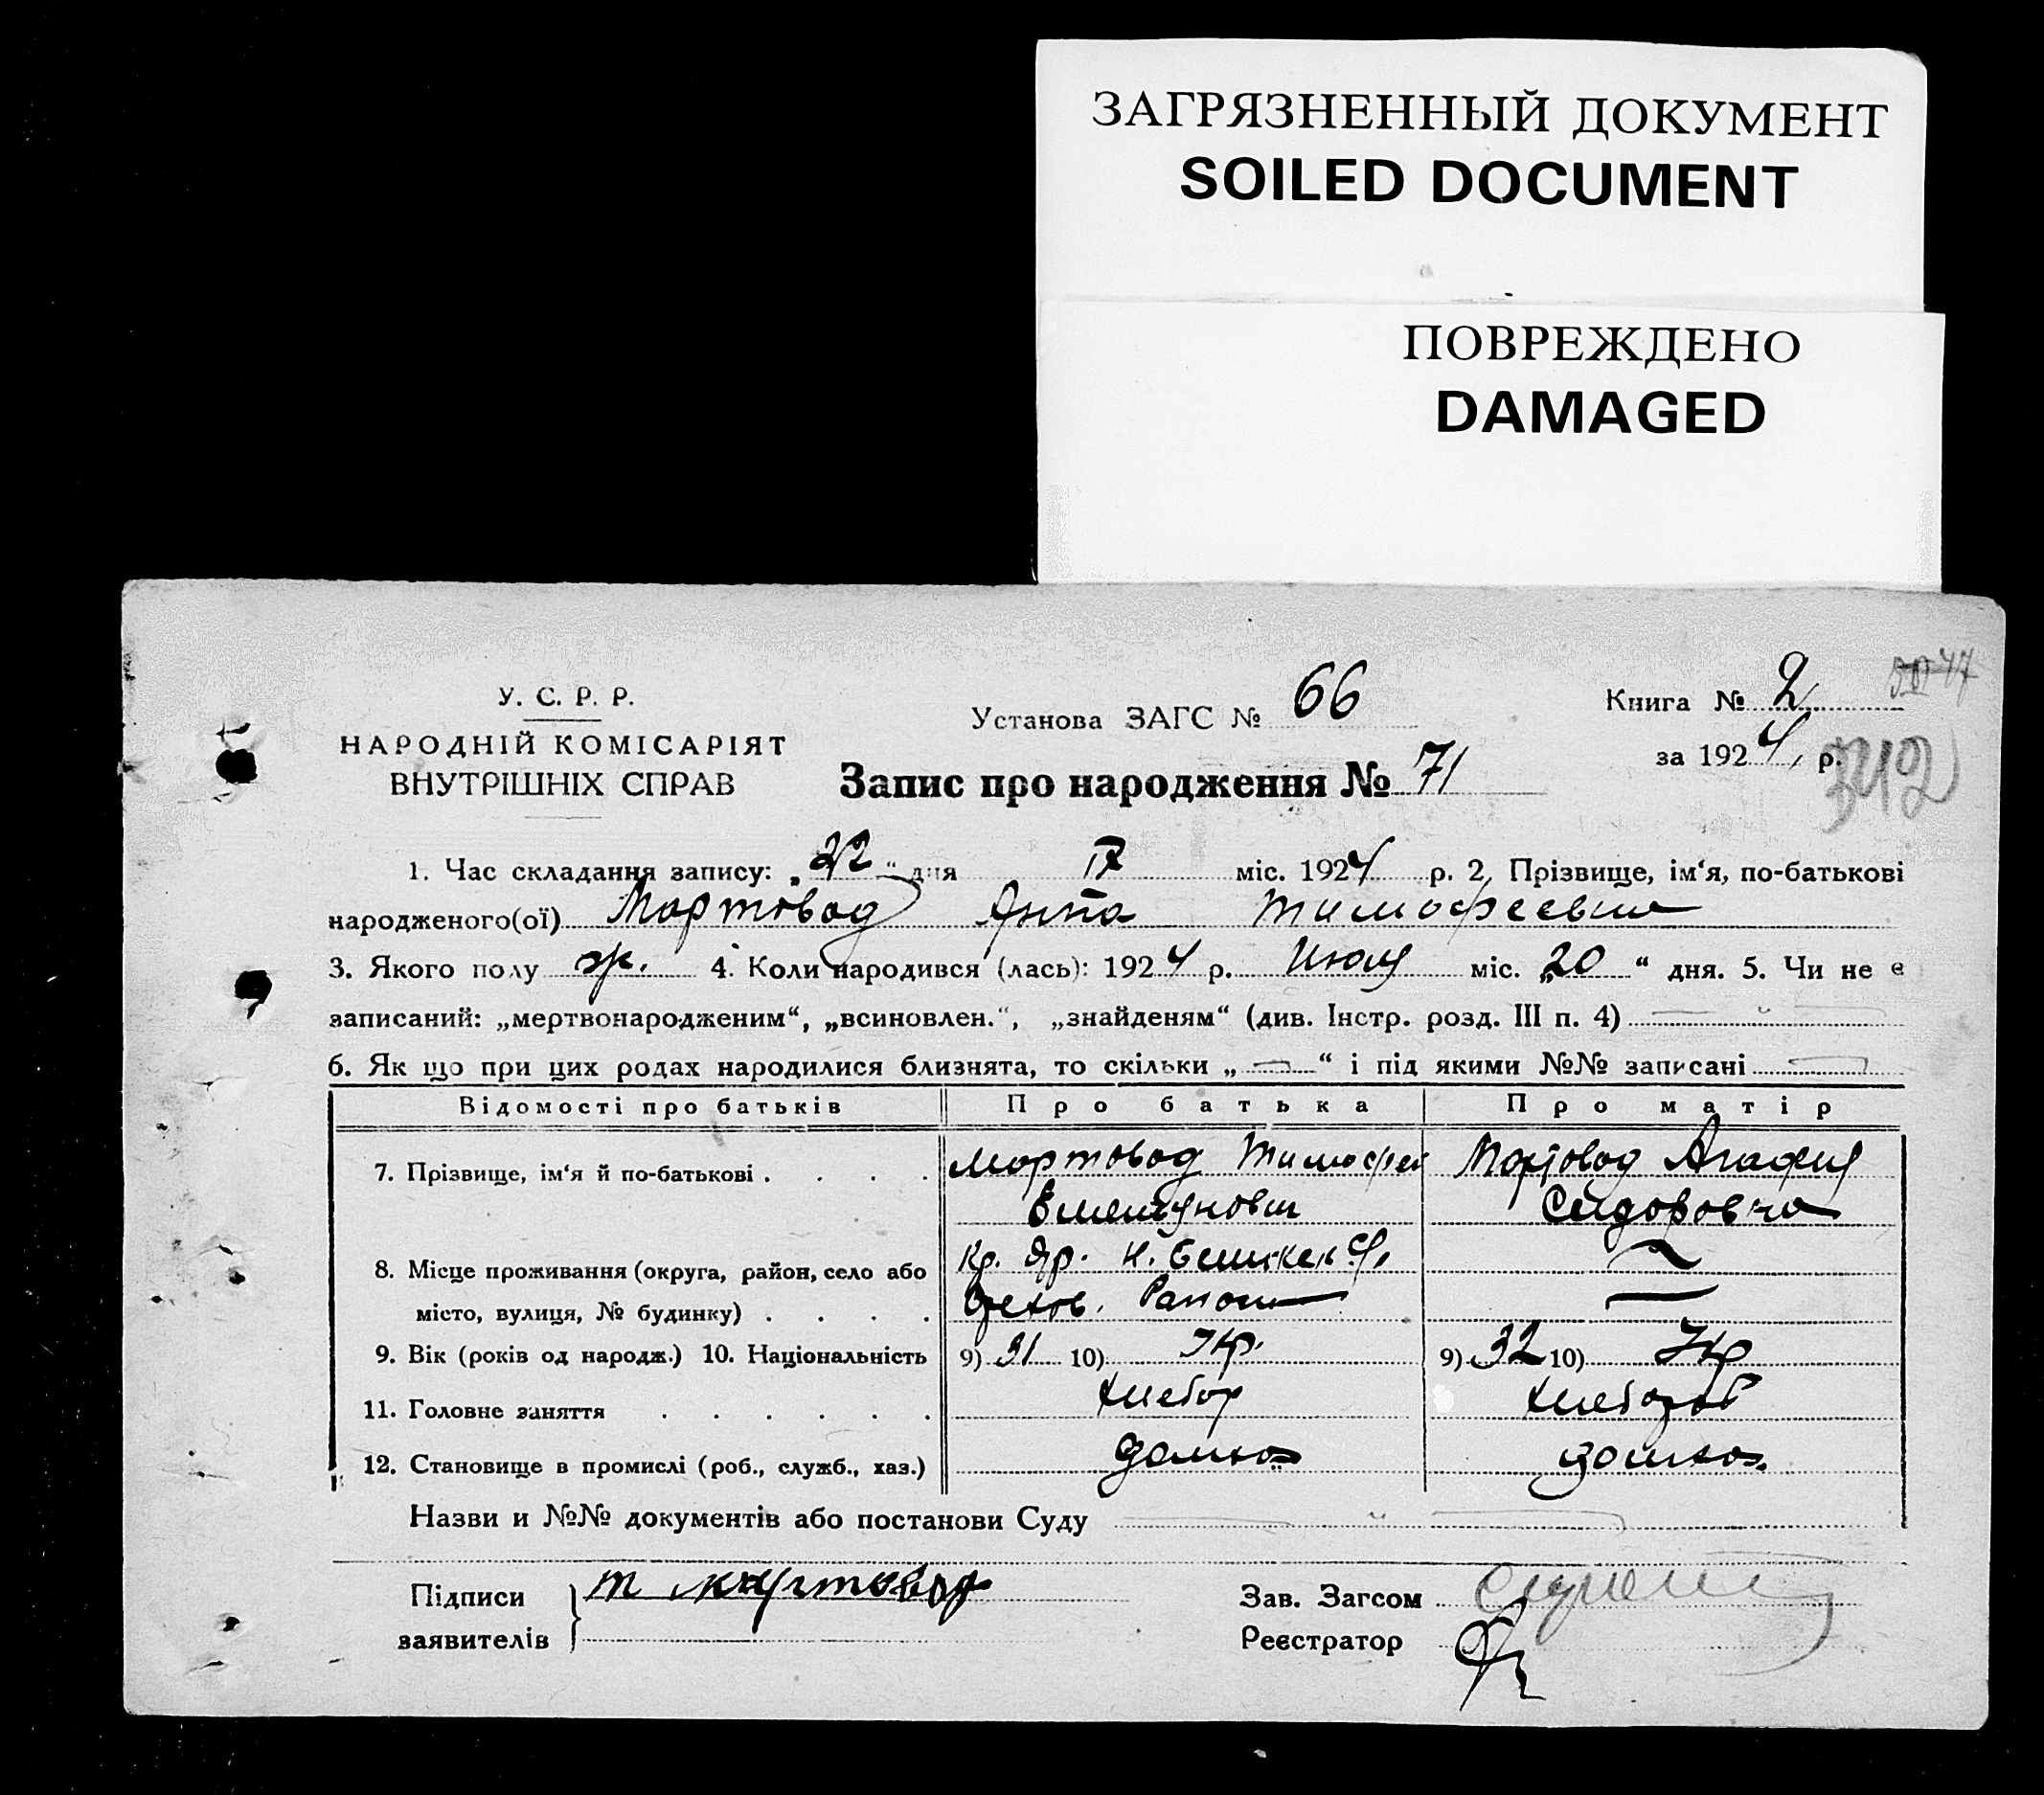 ЗАГРЯЗНЕННЫЙ ДОКУМЕНТ
SOILED DOCUMENT
ПОВРЕЖДЕНО
DAMAGED
У. С. Р. Р.
НАРОДНІЙ КОМІСАРІЯТ
ВНУТРІШНІХ СПРАВ
Установа ЗАГС № 66
Книга № 2
за 1924 р.
342
Запис про народження № 71
1. Час складання запису: „22“ дня IX міс. 1924 р. 2. Прізвище, ім‘я, по-батькові
народженого(ої) Мартовод Анна Тимофеевна
3. Якого полу ж. 4. Коли народився (лась): 1924 р. Июля міс. „20“ дня. 5. Чи не є
записаний: „мертвонародженим“, „всиновлен.“, „знайденям“ (див. Інстр. розд. III п. 4)
6. Як що при цих родах народилися близнята, то скільки „—“ і під якими №№ записані —
Відомості про батьків Про батька Про матір
7. Прізвище, ім‘я й по-батькові . . . . Мартовод Тимофей Мартовод Агафия
Сидоровна
8. Місце проживання (округа, район, село або Кр.
місто, вулиця, № будинку) . . . .
9. Вік (років од народж.) 10. Національність 9) 31 10) Укр. 9) 32 10) Укр
11. Головне заняття . . . . . . Хлебор Хлебороб
12. Становище в промислі (роб., служб., хаз.) домхоз домхоз.
Назви и №№ документів або постанови Суду
Підписи Т Мартовод Зав. Загсом
заявителів Реєстратор